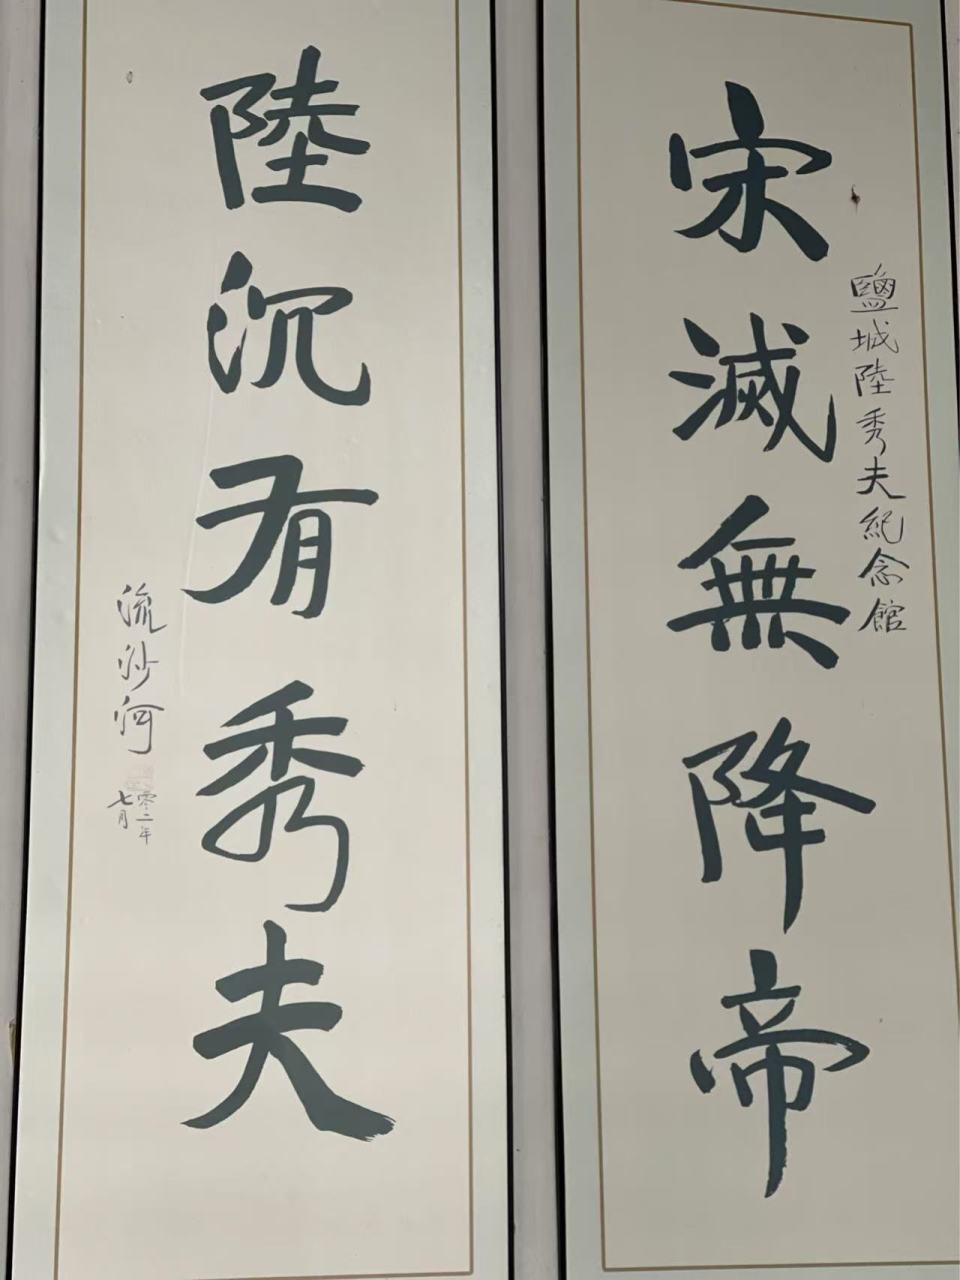 宋滅無降帝
鹽城陸秀夫紀念館
陸沉有秀夫
流沙河
零二年
七月